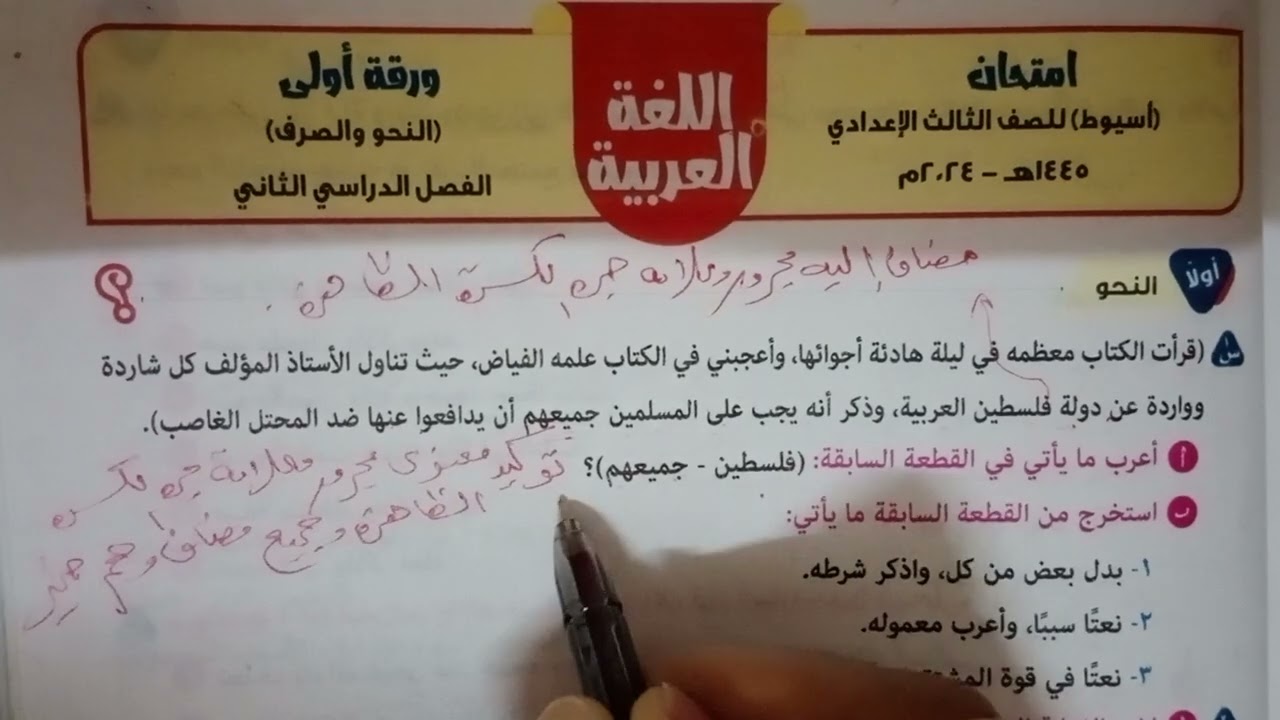 امتحان
(أسيوط) للصف الثالث الإعدادي
١٤٤٥هـ - ٢٠٢٤م
اللغة
العربية
ورقة أولى
(النحو والصرف)
الفصل الدراسي الثاني
أولًا النحو
مضاف إليه مجرور وعلامة جره الكسرة الظاهرة
س١ (قرأت الكتاب معظمه في ليلة هادئة أجوائها، وأعجبني في الكتاب علمه الفياض، حيث تناول الأستاذ المؤلف كل شاردة
وواردة عن دولة فلسطين العربية، وذكر أنه يجب على المسلمين جميعهم أن يدافعوا عنها ضد المحتل الغاصب).
أ أعرب ما يأتي في القطعة السابقة: (فلسطين - جميعهم)؟
توكيد معنوى مجرور وعلامة جره
الظاهرة وجميع مضاف وهم ضمير
ب استخرج من القطعة السابقة ما يأتي:
١- بدل بعض من كل، واذكر شرطه.
٢- نعتًا سببًا، وأعرب معموله.
٣- نعتًا في قوة